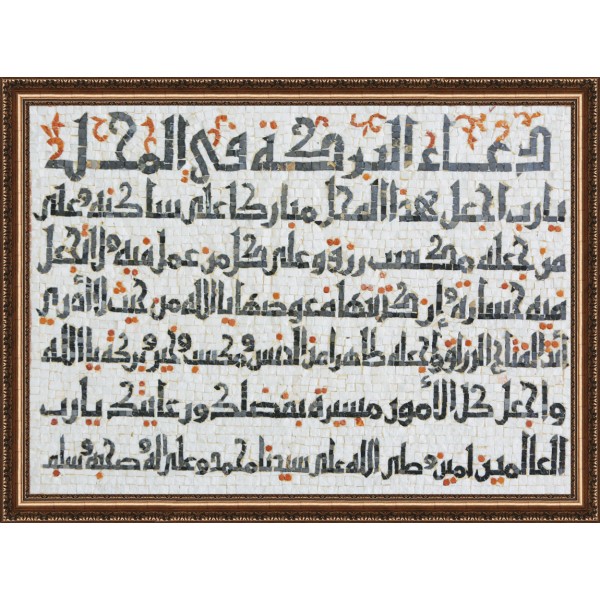 دعاء البركة في المحل
يارب اجعل هذا المحل مباركا على ساكنه وعلى
من جعله مكسب رزق وعلى كل من عمل فيه ولا تجعل
فيه خسارة وإن كتبتها فعوضها يا الله من حيث لا أدري
أنت الفتاح الرزاق واجعله طاهرا من الدنس ومكسب وخير وبركة يا الله
واجعل كل الأمور ميسرة بفضلك ورعايتك يارب
العالمين امين وصلى الله على سيدنا محمد وعلى آله وصحبه وسلم